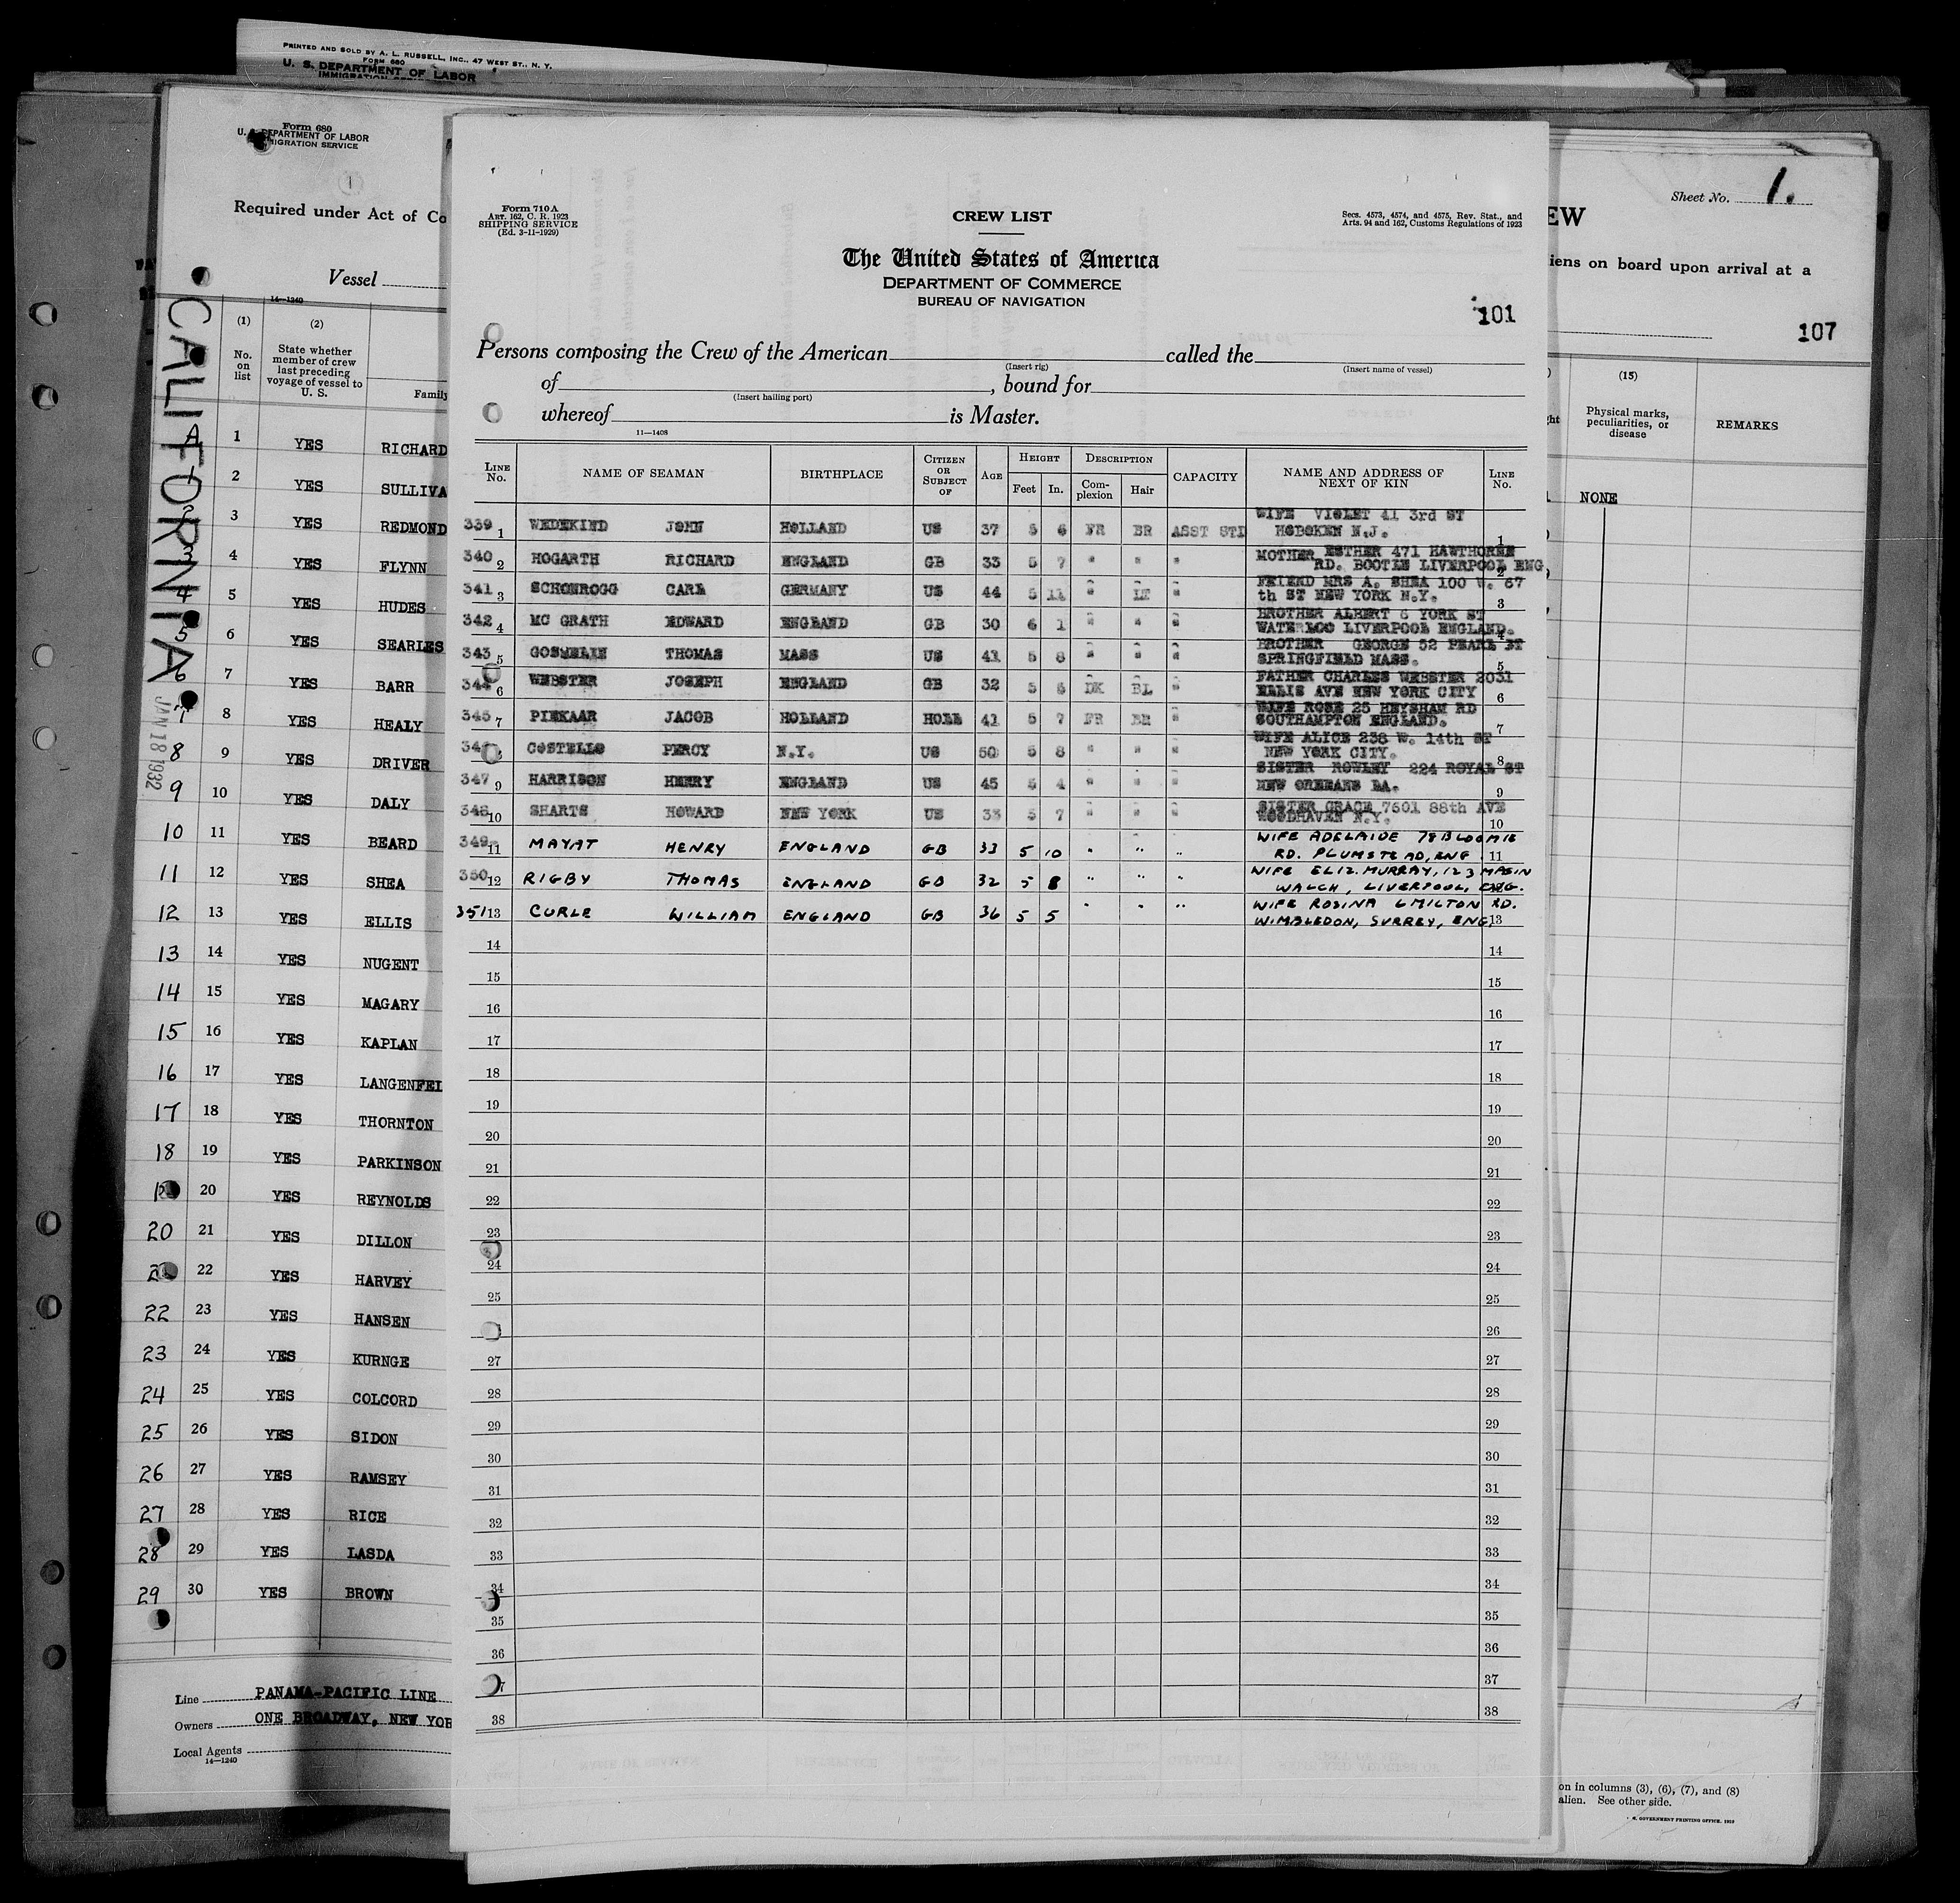 PRINTED AND SOLD BY A. L. RUSSELL, INC., 47 WEST ST., N. Y.
FORM 680
U. S. DEPARTMENT OF LABOR
Form 680
U. S. DEPARTMENT OF LABOR
IMMIGRATION SERVICE
1
Required under Act of Co
Vessel
14—1240
CALIFORNIA
JAN 18 1932
(1) (2)
No. on list
State whether member of crew last preceding voyage of vessel to U. S.
Family
1 YES RICHARD
2 YES SULLIVA
2 3 YES REDMOND
3 4 YES FLYNN
4 5 YES HUDES
5 6 YES SEARLES
6 7 YES BARR
7 8 YES HEALY
8 9 YES DRIVER
9 10 YES DALY
10 11 YES BEARD
11 12 YES SHEA
12 13 YES ELLIS
13 14 YES NUGENT
14 15 YES MAGARY
15 16 YES KAPLAN
16 17 YES LANGENFEL
17 18 YES THORNTON
18 19 YES PARKINSON
20 YES REYNOLDS
20 21 YES DILLON
22 YES HARVEY
22 23 YES HANSEN
23 24 YES KURNGE
24 25 YES COLCORD
25 26 YES SIDON
26 27 YES RAMSEY
27 28 YES RICE
28 29 YES LASDA
29 30 YES BROWN
Line PANAMA-PACIFIC LINE
Owners ONE BROADWAY, NEW YOR
Local Agents
14—1240
Form 710 A
ART. 162, C. R. 1923
SHIPPING SERVICE
(Ed. 3-11-1929)
CREW LIST
Secs. 4573, 4574, and 4575, Rev. Stat., and
Arts. 94 and 162, Customs Regulations of 1923
The United States of America
DEPARTMENT OF COMMERCE
BUREAU OF NAVIGATION
101
Persons composing the Crew of the American called the
(Insert rig) (Insert name of vessel)
of , bound for
(Insert hailing port)
whereof is Master.
11—1408
LINE No. NAME OF SEAMAN BIRTHPLACE CITIZEN OR SUBJECT OF AGE HEIGHT Feet In. DESCRIPTION Complexion Hair CAPACITY NAME AND ADDRESS OF NEXT OF KIN LINE No.
339 1 WEDEKIND JOHN HOLLAND US 37 5 6 FR BR ASST STD WIFE VIOLET 41 3rd ST
HOBOKEN N.J. 1
340 2 HOGARTH RICHARD ENGLAND GB 33 5 7 " " " MOTHER ESTHER 471 HAWTHORNE
RD. BOOTLE LIVERPOOL ENG 2
341 3 SCHONROGG CARL GERMANY US 44 5 11 " LT " FRIEND MRS A. SHEA 100 W. 67
th ST NEW YORK N.Y. 3
342 4 MC GRATH EDWARD ENGLAND GB 30 6 1 " " " BROTHER ALBERT 6 YORK ST
WATERLOO LIVERPOOL ENGLAND. 4
343 5 GOSMELIN THOMAS MASS US 41 5 8 " " " BROTHER GEORGE 52 PEARL ST
SPRINGFIELD MASS. 5
344 6 WEBSTER JOSEPH ENGLAND GB 32 5 6 DK BL " FATHER CHARLES WEBSTER 2031
ELLIS AVE NEW YORK CITY 6
345 7 PIEKAAR JACOB HOLLAND HOLL 41 5 7 FR BR " WIFE ROSE 25 HEYSHAM RD
SOUTHAMPTON ENGLAND. 7
COSTELLO PERCY N.Y. US 50 5 8 " " " WIFE ALICE 238 W. 14th ST
NEW YORK CITY. 8
347 9 HARRISON HENRY ENGLAND US 45 5 4 " " " SISTER ROWLEY 224 ROYAL ST
NEW ORLEANS LA. 9
348 10 SHARTS HOWARD NEW YORK US 33 5 7 " " " SISTER GRACE 7601 88th AVE
WOODHAVEN N.Y. 10
349 11 MAYAT HENRY ENGLAND GB 33 5 10 " " " WIFE ADELAIDE 78 BLOOMIE
RD. PLUMSTEAD, ENG 11
350 12 RIGBY THOMAS ENGLAND GB 32 5 8 " " " WIFE ELIZ. MURRAY, 123
LIVERPOOL, ENG.
351 13 CURLE WILLIAM ENGLAND GB 36 5 5 " " " WIFE ROSINA 6 MILTON RD.
WIMBLEDON, SURREY, ENG. 13
14 14
15 15
16 16
17 17
18 18
19 19
20 20
21 21
22 22
23 23
24 24
25 25
26
27 27
28 28
29 29
30 30
31 31
32 32
33 33
34 34
35 35
36 36
37
38 38
Sheet No. 1.
EW
iens on board upon arrival at a
107
(15)
Physical marks, peculiarities, or disease
REMARKS
NONE
on in columns (3), (6), (7), and (8)
alien. See other side.
GOVERNMENT PRINTING OFFICE